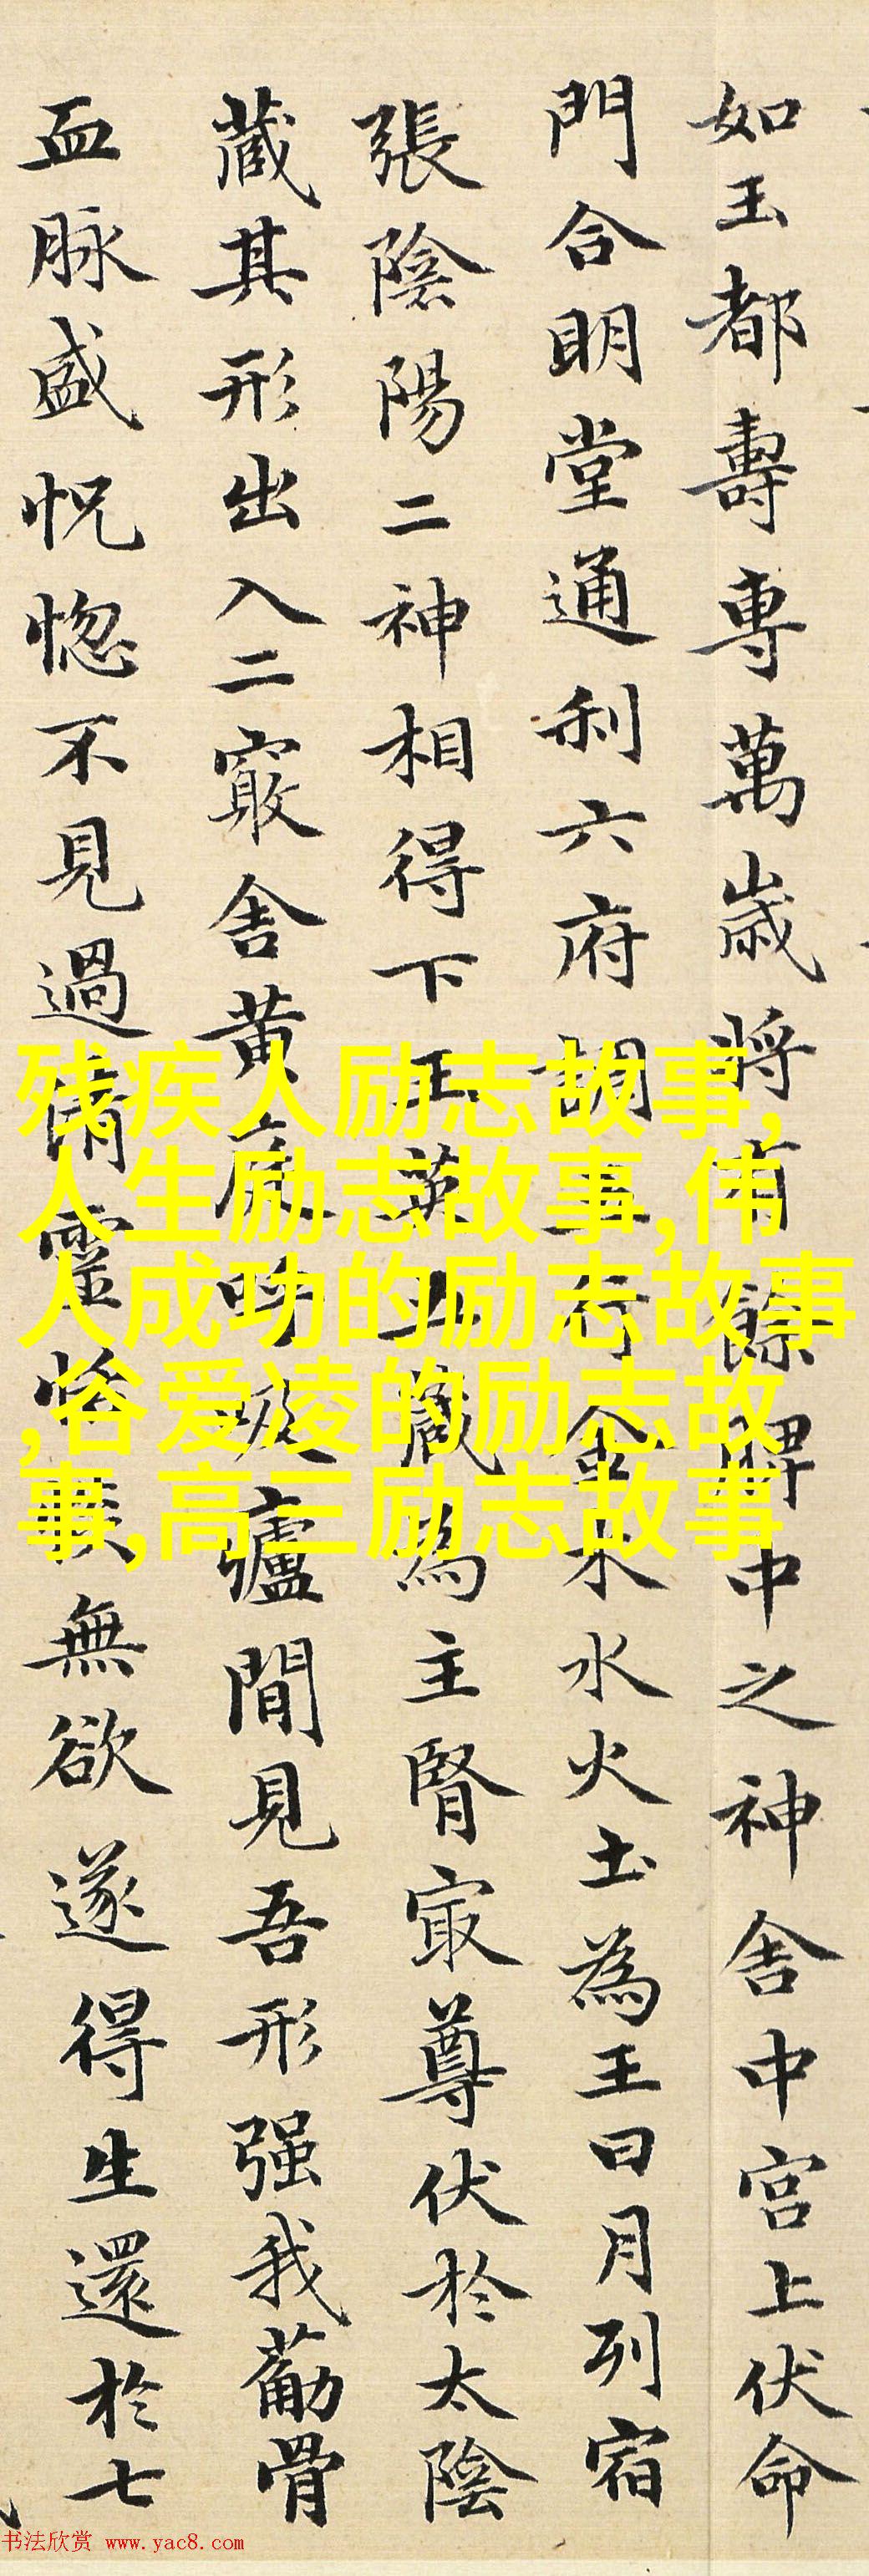 如玉都壽專萬歲將有餘脾中之神舍中宮上伏命
門合明堂通利六府調五行金木水火土為王日月列宿
張陰陽二神相得下玉英五藏為主腎寂尊伏於太陰
藏其形出入二竅舍黃庭呼吸廬間見吾形强我葡骨
血脉盛怳惚不見過清靈恬淡無欲遂得生還於七
残疾人励志故事,
人生励志故事,伟
人成功的励志故事
,谷爱凌的励志故
事,高三励志故事
书法欣赏 www.yac8.com